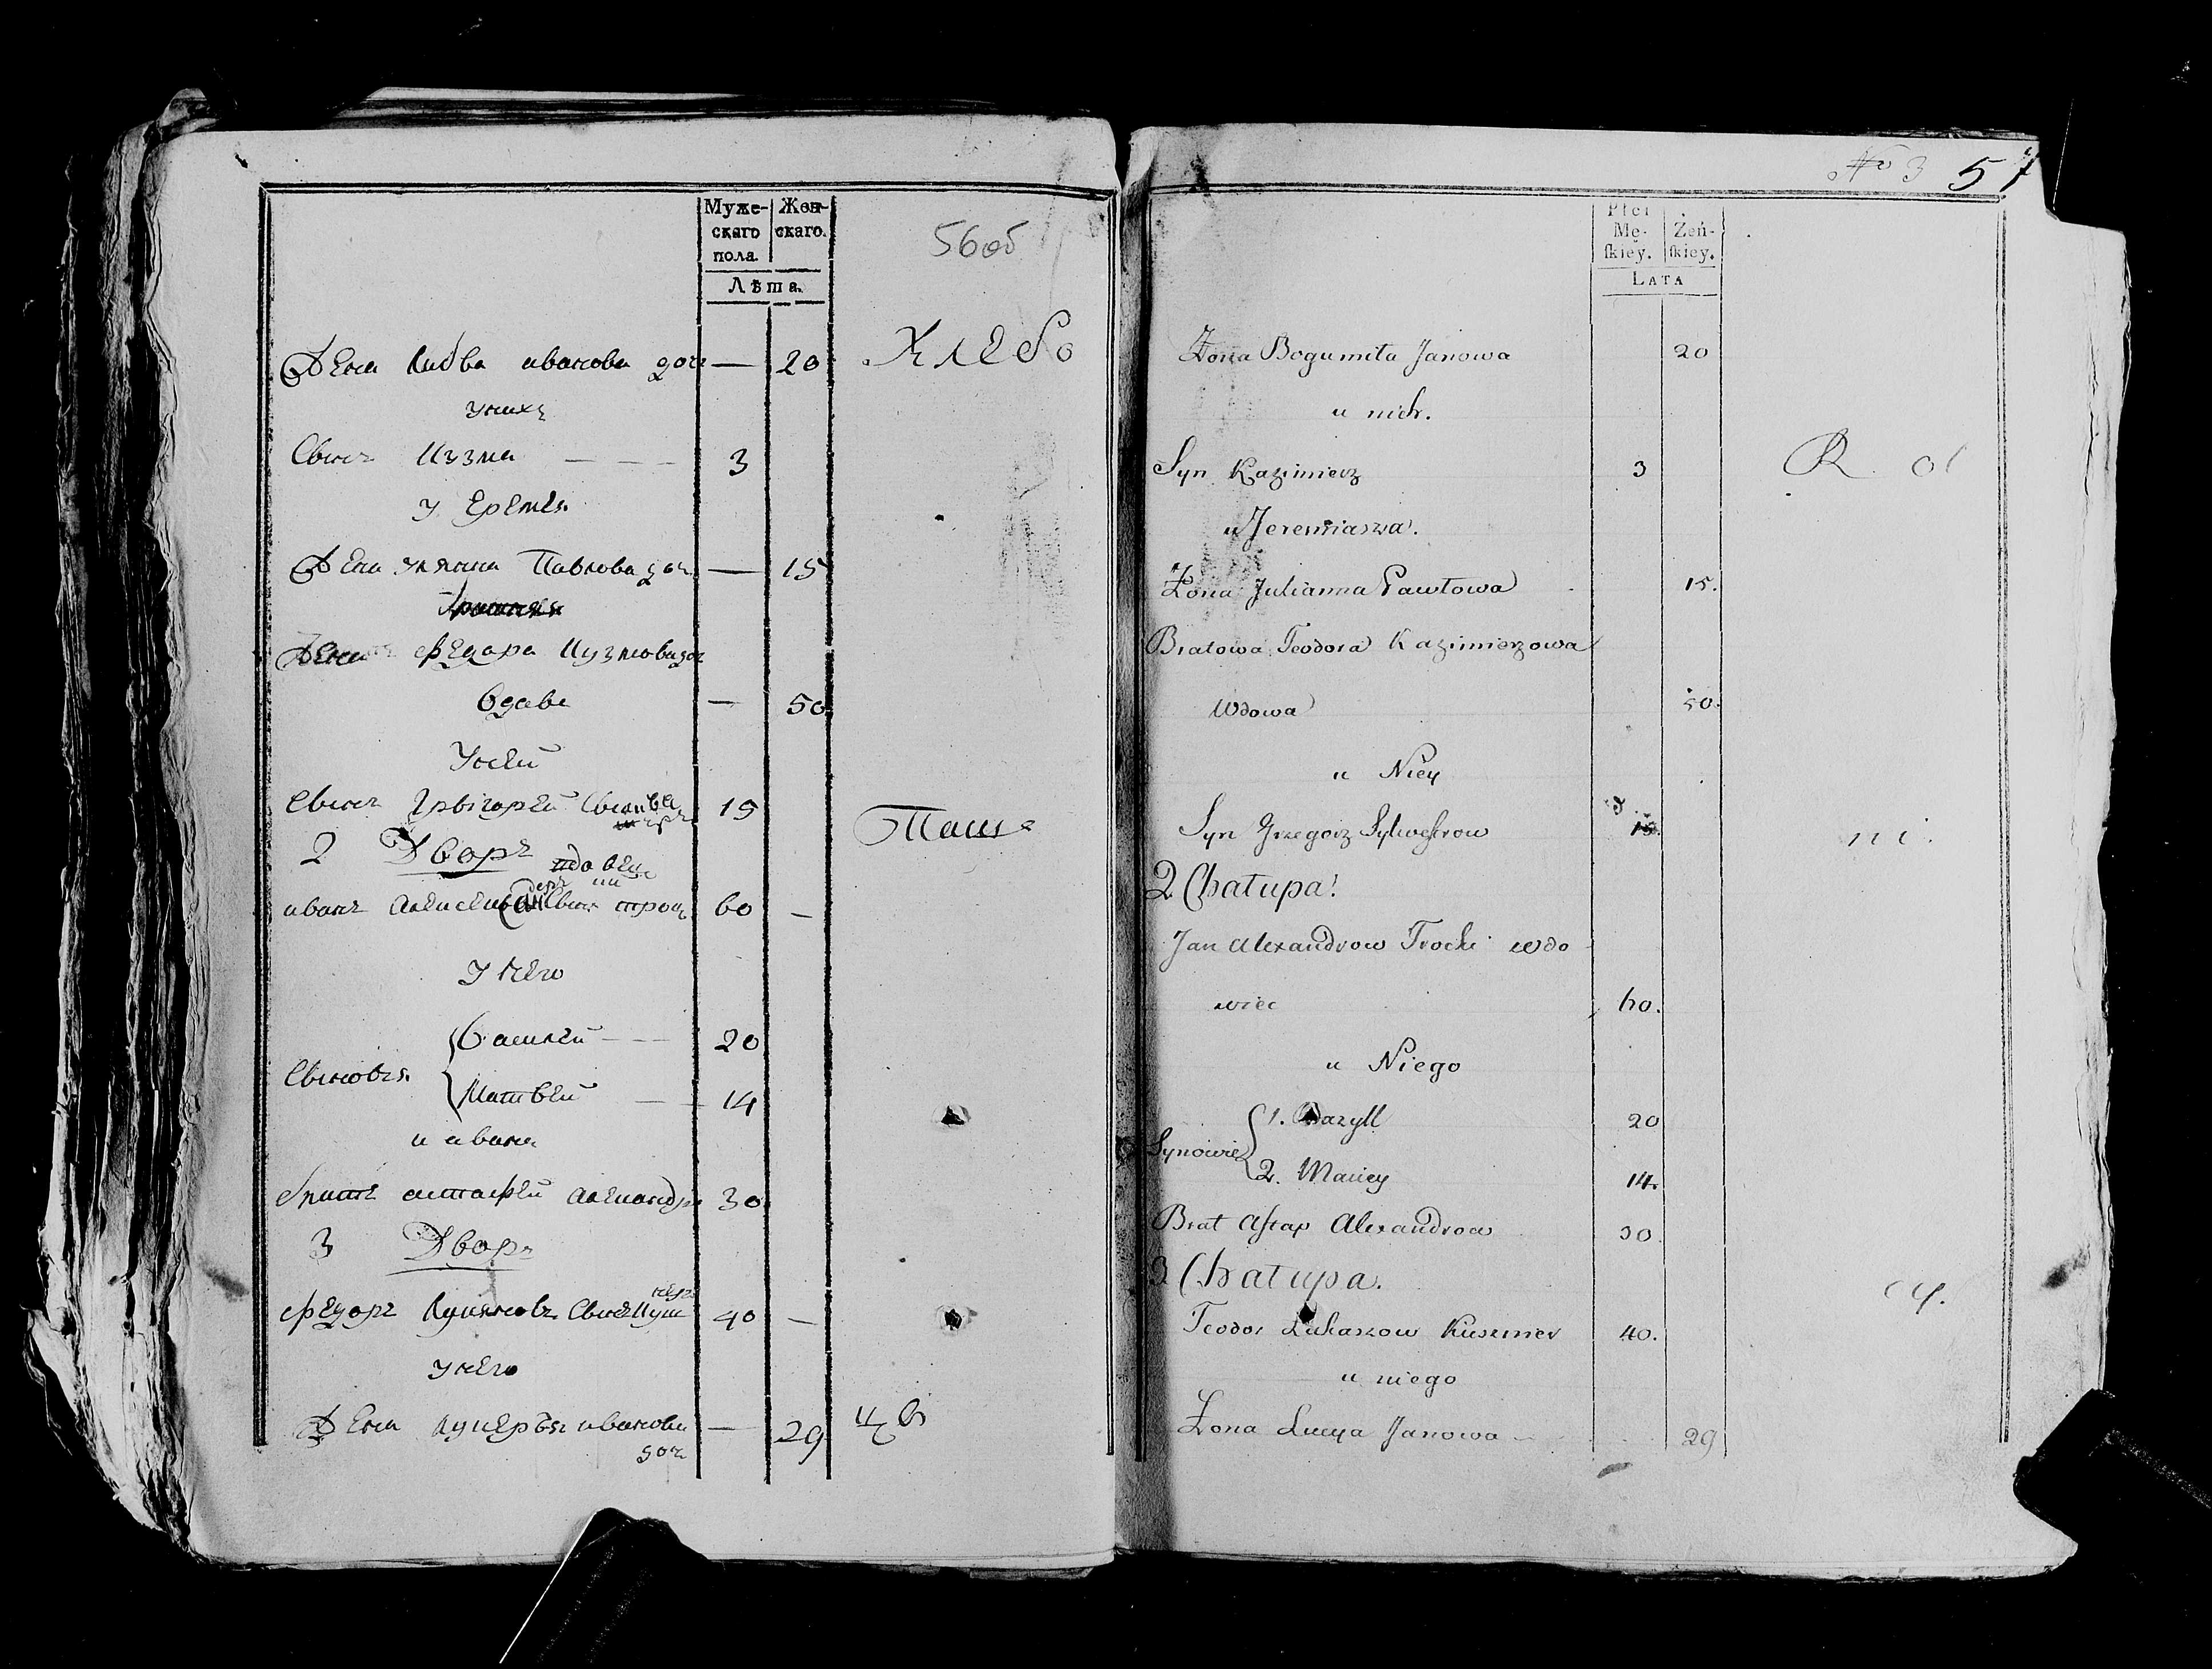 Муже-
скаго
пола.
Жен-
скаго.
Лѣта.
56об
Жена Любва иванова доч — 20 Хлебо
У нихъ
Сынъ Кузма — — — 3
У Еремея
Жена Уляна Павлова доч — 15
Жена Федора Кузмова доч
вдава — 50
У ней
Сынъ Григорей 15 Паш
2 Дворъ
вдовец
иванъ сынъ троц 60 —
У него
Сыновья { Василей — — 20
Матвей — 14
и ивана
братъ астафей Александр 30
3 Дворъ
Федоръ Лукяновъ Сынъ Куш
нер 40 —
У него
Жена Лукеръя иванова — 29
доч
№ 3 57
Płci
Mę-
ſkiey.
Żeń-
ſkiey.
LATA
Żona Bogumiła Janowa 20
u nich.
Syn Kazimierz 3 R. ol
u Jeremiasza.
Żona Julianna Pawłowa 15.
Bratowa Teodora Kazimierzowa
Wdowa 50.
u Niey
Syn Grzegorz Sylwestrow 15. ni.
2 Chałupa.
Jan Alexandrow Trocki wdo
wiec 60.
u Niego
Synowie { 1. Bazyll 20
2. Maciey 14.
Brat Astap Alexandrow 30
3 Chałupa.
Teodor Łukaszow Kuszner 40.
u niego
Żona Łucya Janowa 29